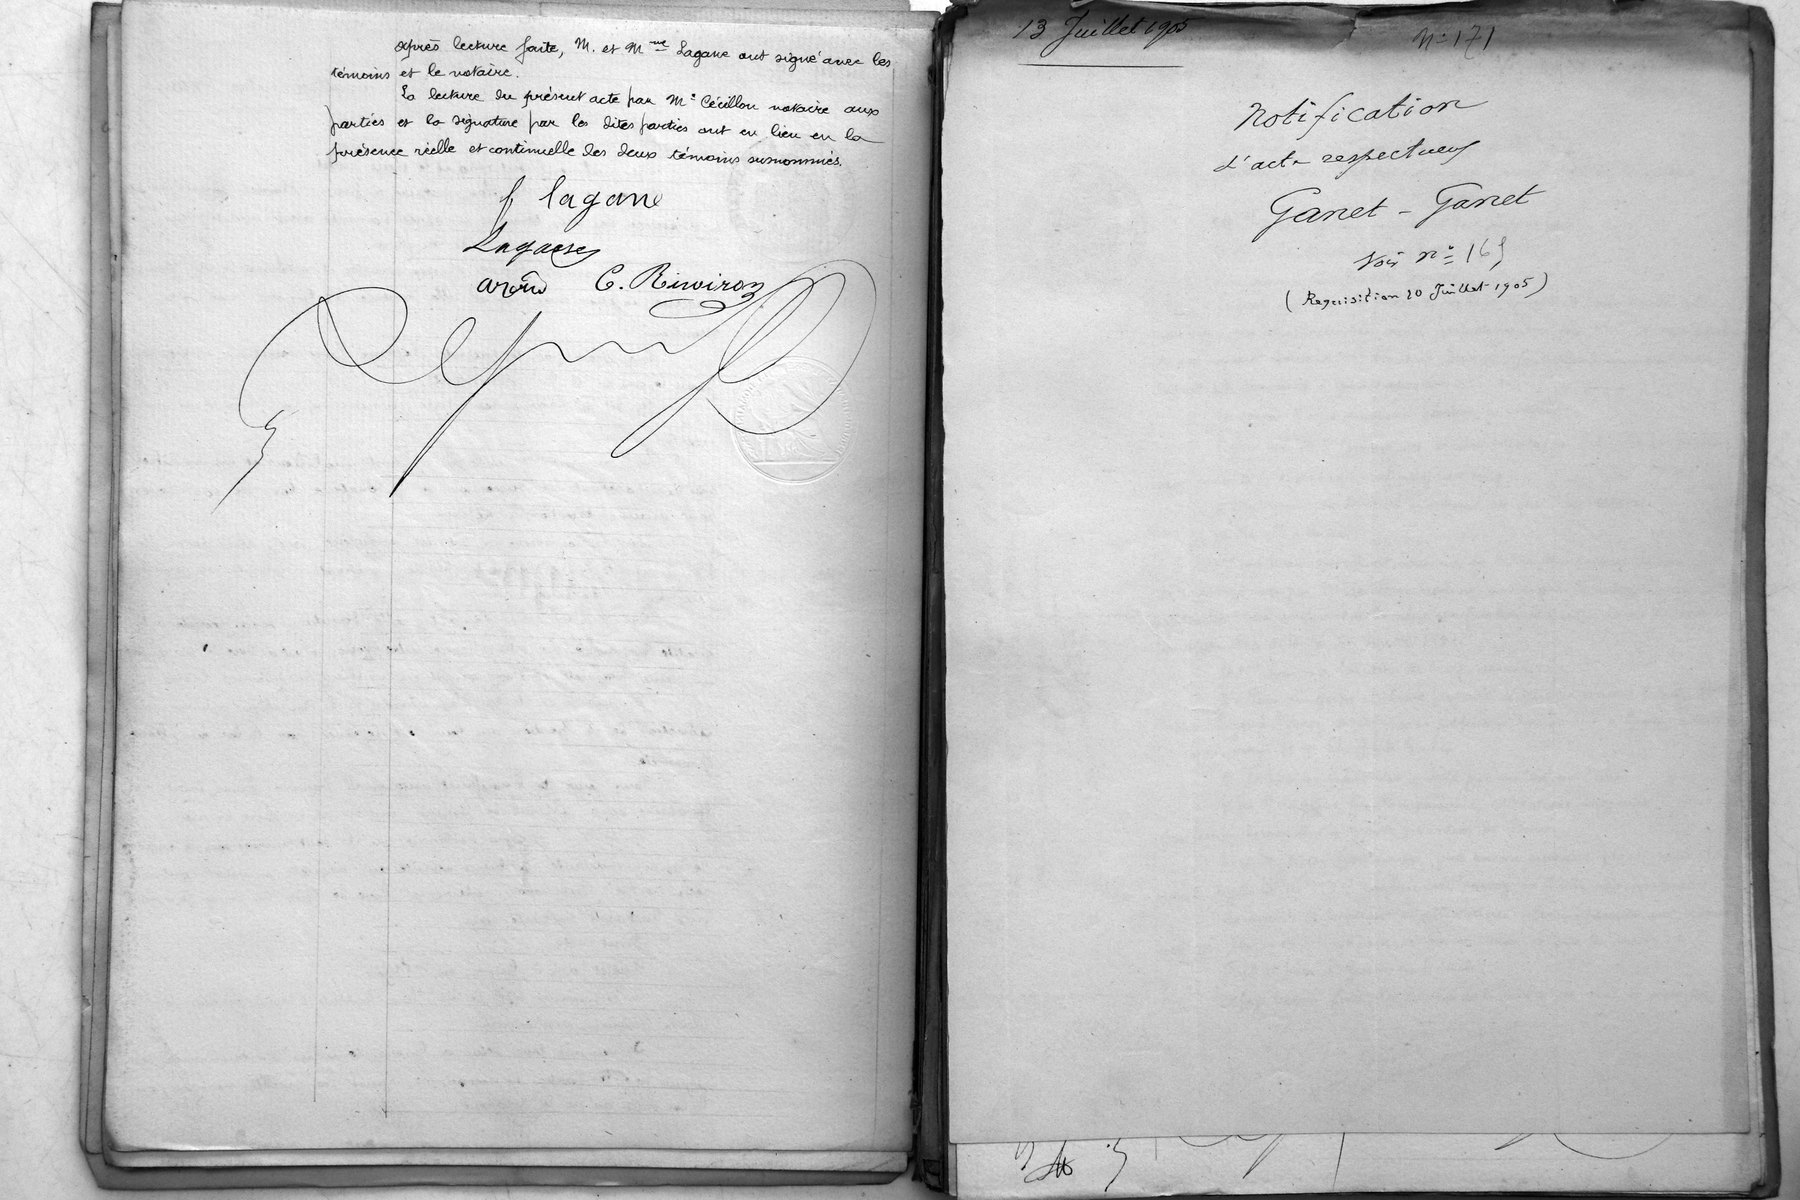 après lecture faite, M. et Mme Lagane ont signé avec les
témoins et le notaire.
La lecture du présent acte par Me Cécillon notaire aux
parties et la signature par les dites parties ont eu lieu en la
présence réelle et continuelle des deux témoins susnommés.
f lagane
Lagane
C. Riviron
13 Juillet 1905
No 171
Notification
d'acte respectueux
Ganet - Ganet
Voir no 169
(Requisition 20 Juillet 1905)